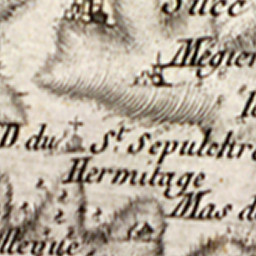 Succ
Mégier
D. du St. Sepulchre
Hermitage
Mas d
llevue